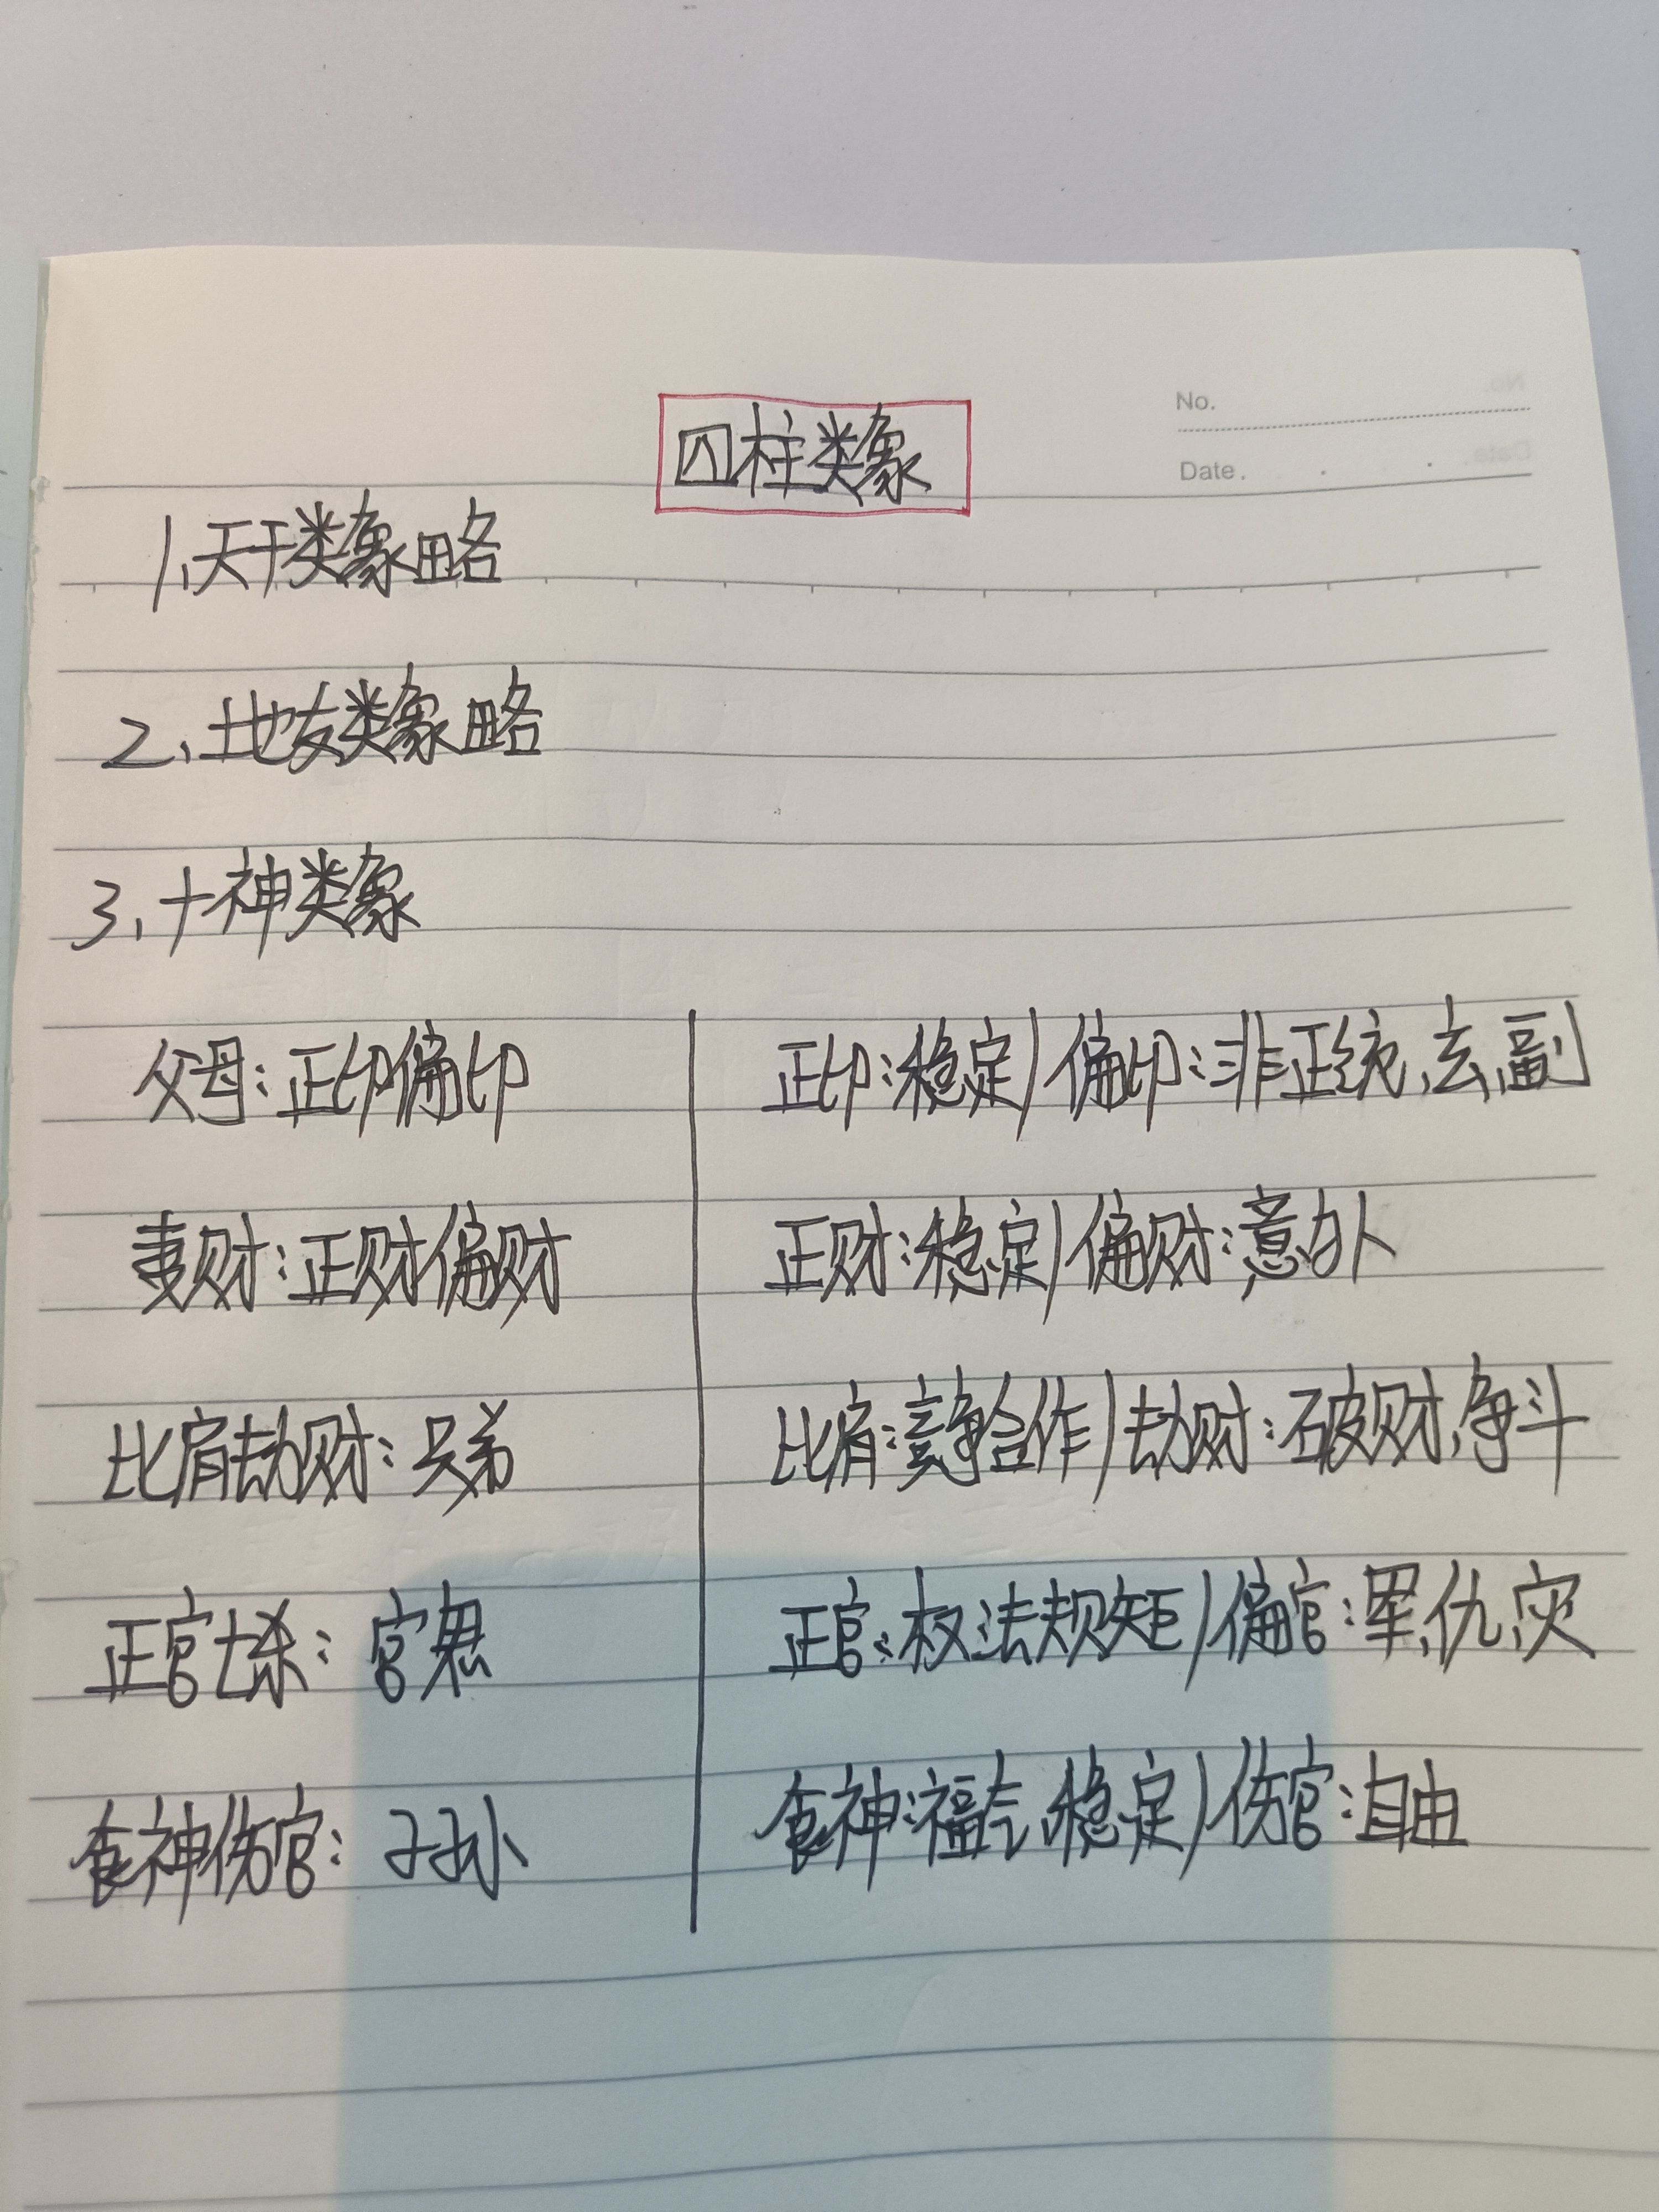 No.
Date.
四柱类象
1、天干类象 略
2、地支类象 略
3、十神类象
父母：正印偏印
正印：稳定/偏印：非正统、玄、副
妻财：正财偏财
正财：稳定/偏财：意外
比肩劫财：兄弟
比肩：竞争合作/劫财：破财、争斗
正官七杀：官鬼
正官：权、法、规矩/偏官：军、仇、灾
食神伤官：子孙
食神：福气、稳定/伤官：自由